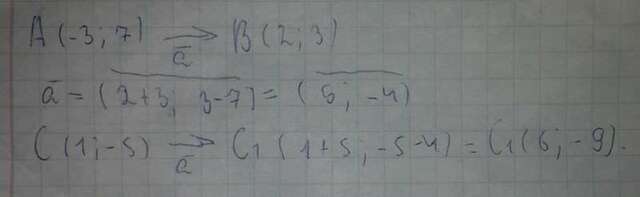 A(-3; 7) →ā B(2; 3)
ā = (2+3; 3-7) = (5; -4)
C(1; -5) →ā C₁(1+5; -5-4) = C₁(6; -9).